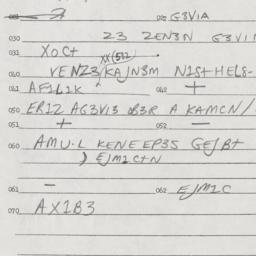 020 G3V1A
030 23 ZEN3N G3V1N
031 XOC+
XX(512
040 VENZ3/KAJN3M N1S+HEL8-
041 AF1L1K 042 +
050 ER1Z AG3V13 0B3R A KAMCN/
051 + 052 —
060 AMU·L KENE EP3S GEJB+
) EJM1C+N
061 — 062 EJM1C
070 AX1B3